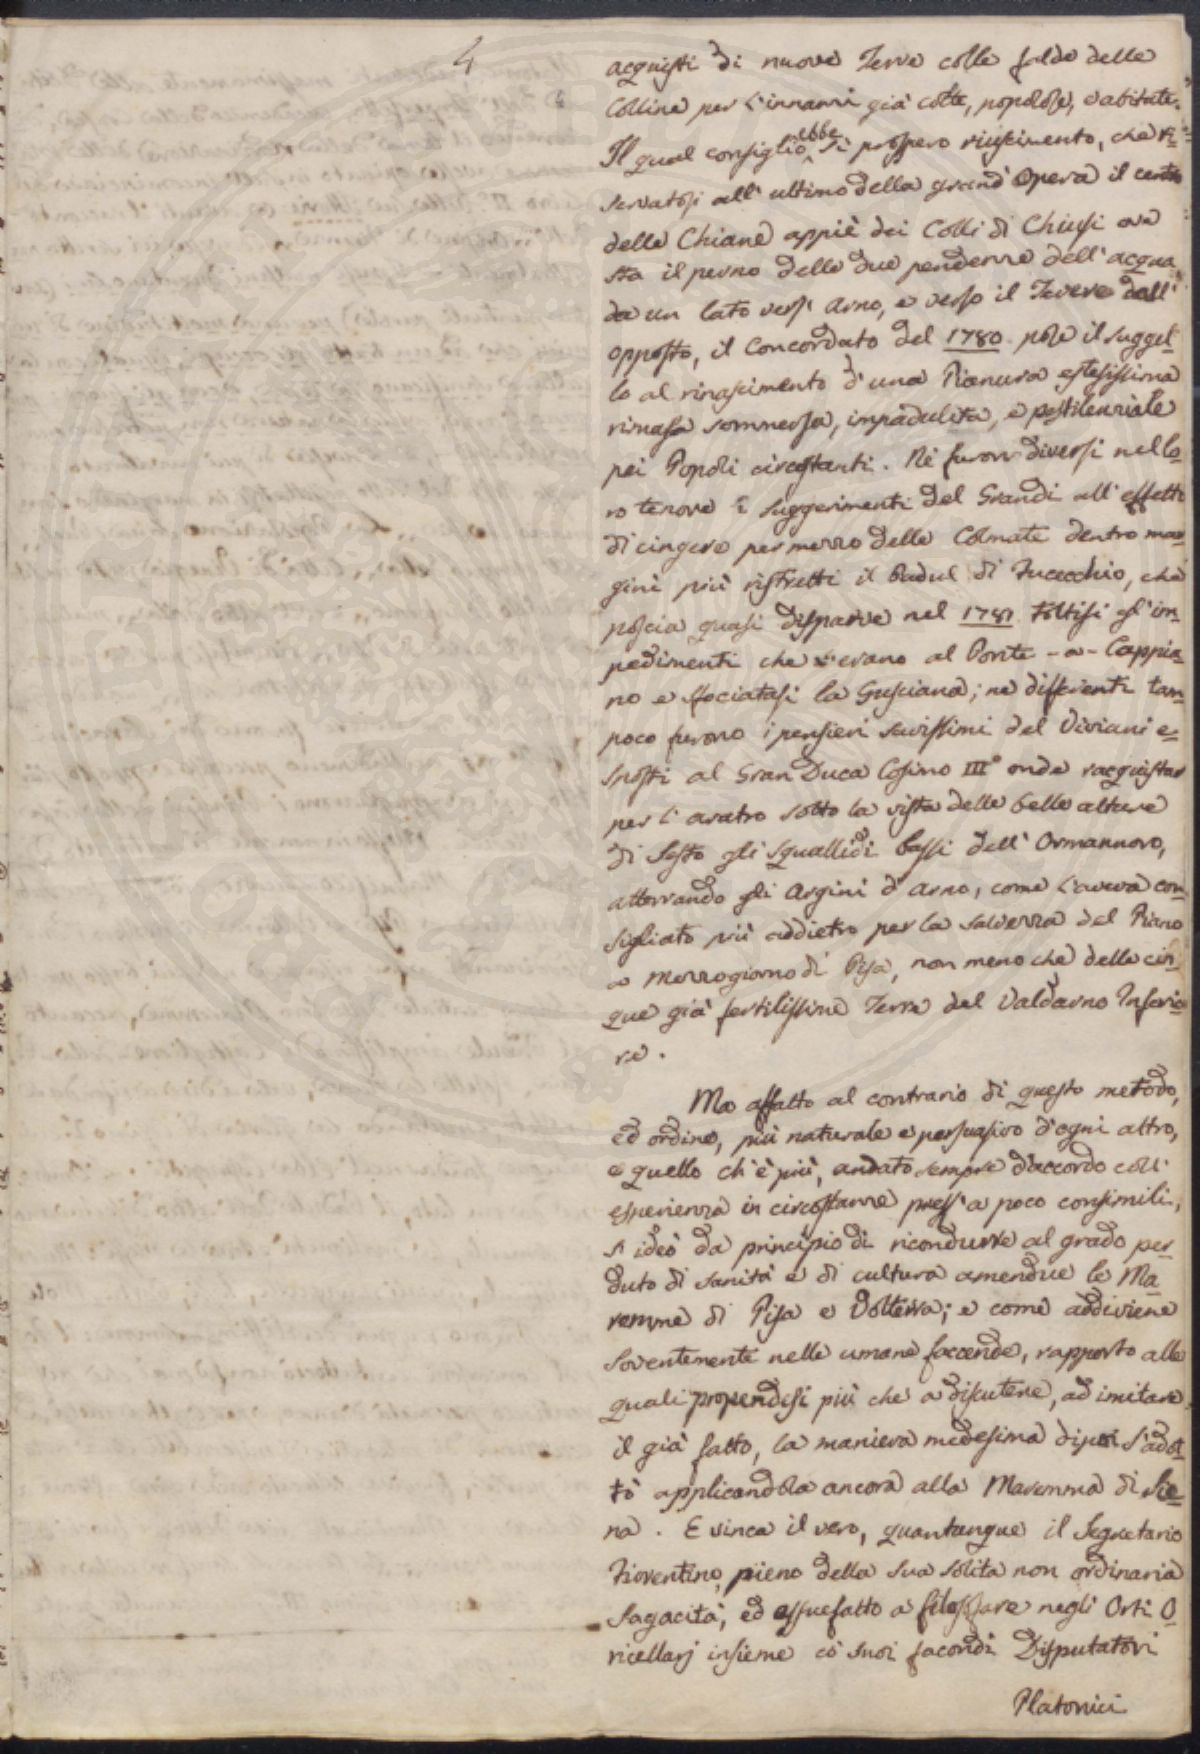 4
acquisti di nuove Terre colle falde delle
Colline per l'innanzi già colte, popolose, e abitate.
Il qual consiglio ebbe sì prospero riuscimento, che ri=
servatosi all' ultimo della grand' Opera il centro
delle Chiane appiè dei Colli di Chiusi ove
sta il perno delle due pendenze dell' acqua
da un lato vers' Arno, e verso il Tevere dall'
opposto, il Concordato del 1780. pose il suggel=
lo al rinascimento d' una Pianura estesissima
rimasa sommersa, impadulita, e pestilenziale
pei Popoli circostanti. Nè furon diversi nel lo=
ro tenore i suggerimenti del Grandi all' effetto
di cingere per mezzo delle Colmate dentro mar=
gini più ristretti il Padul di Fucecchio, che
poscia quasi disparve nel 1781 toltisi gl' im=
pedimenti che v' erano al Ponte - a - Cappia=
no e sfociatasi la Gusciana; nè differenti tam=
poco furono i pensieri savissimi del Viviani e=
sposti al Gran Duca Cosimo III° onde racquistar
per l' aratro sotto la vista delle belle alture
di Sesto gli squallidi bassi dell' Ormannoro,
atterrando gli Argini d' Arno, come l' aveva con=
sigliato più addietro per la salvezza del Piano
a mezzogiorno di Pisa, non meno che delle cin=
que già fertilissime Terre del Valdarno Inferio=
re.
Ma affatto al contrario di questo metodo,
ed ordine, più naturale e persuasivo d' ogni altro,
e quello ch' è più, andato sempre d'accordo coll'
esperienza in circostanze press' a poco consimili,
s' ideò da principio di ricondurre al grado per=
duto di sanità e di cultura amendue le Ma=
remme di Pisa e Volterra; e come addiviene
soventemente nelle umane faccende, rapporto alle
quali propendesi più che a discutere, ad imitare
il già fatto, la maniera medesima dipoi s'adot=
tò applicandola ancora alla Maremma di Sie=
na. E vinca il vero, quantunque il Segretario
Fiorentino, pieno della sua solita non ordinaria
sagacità, ed assuefatto a filosofare negli Orti O=
ricellarj insieme co' suoi facondi Disputatori
Platonici